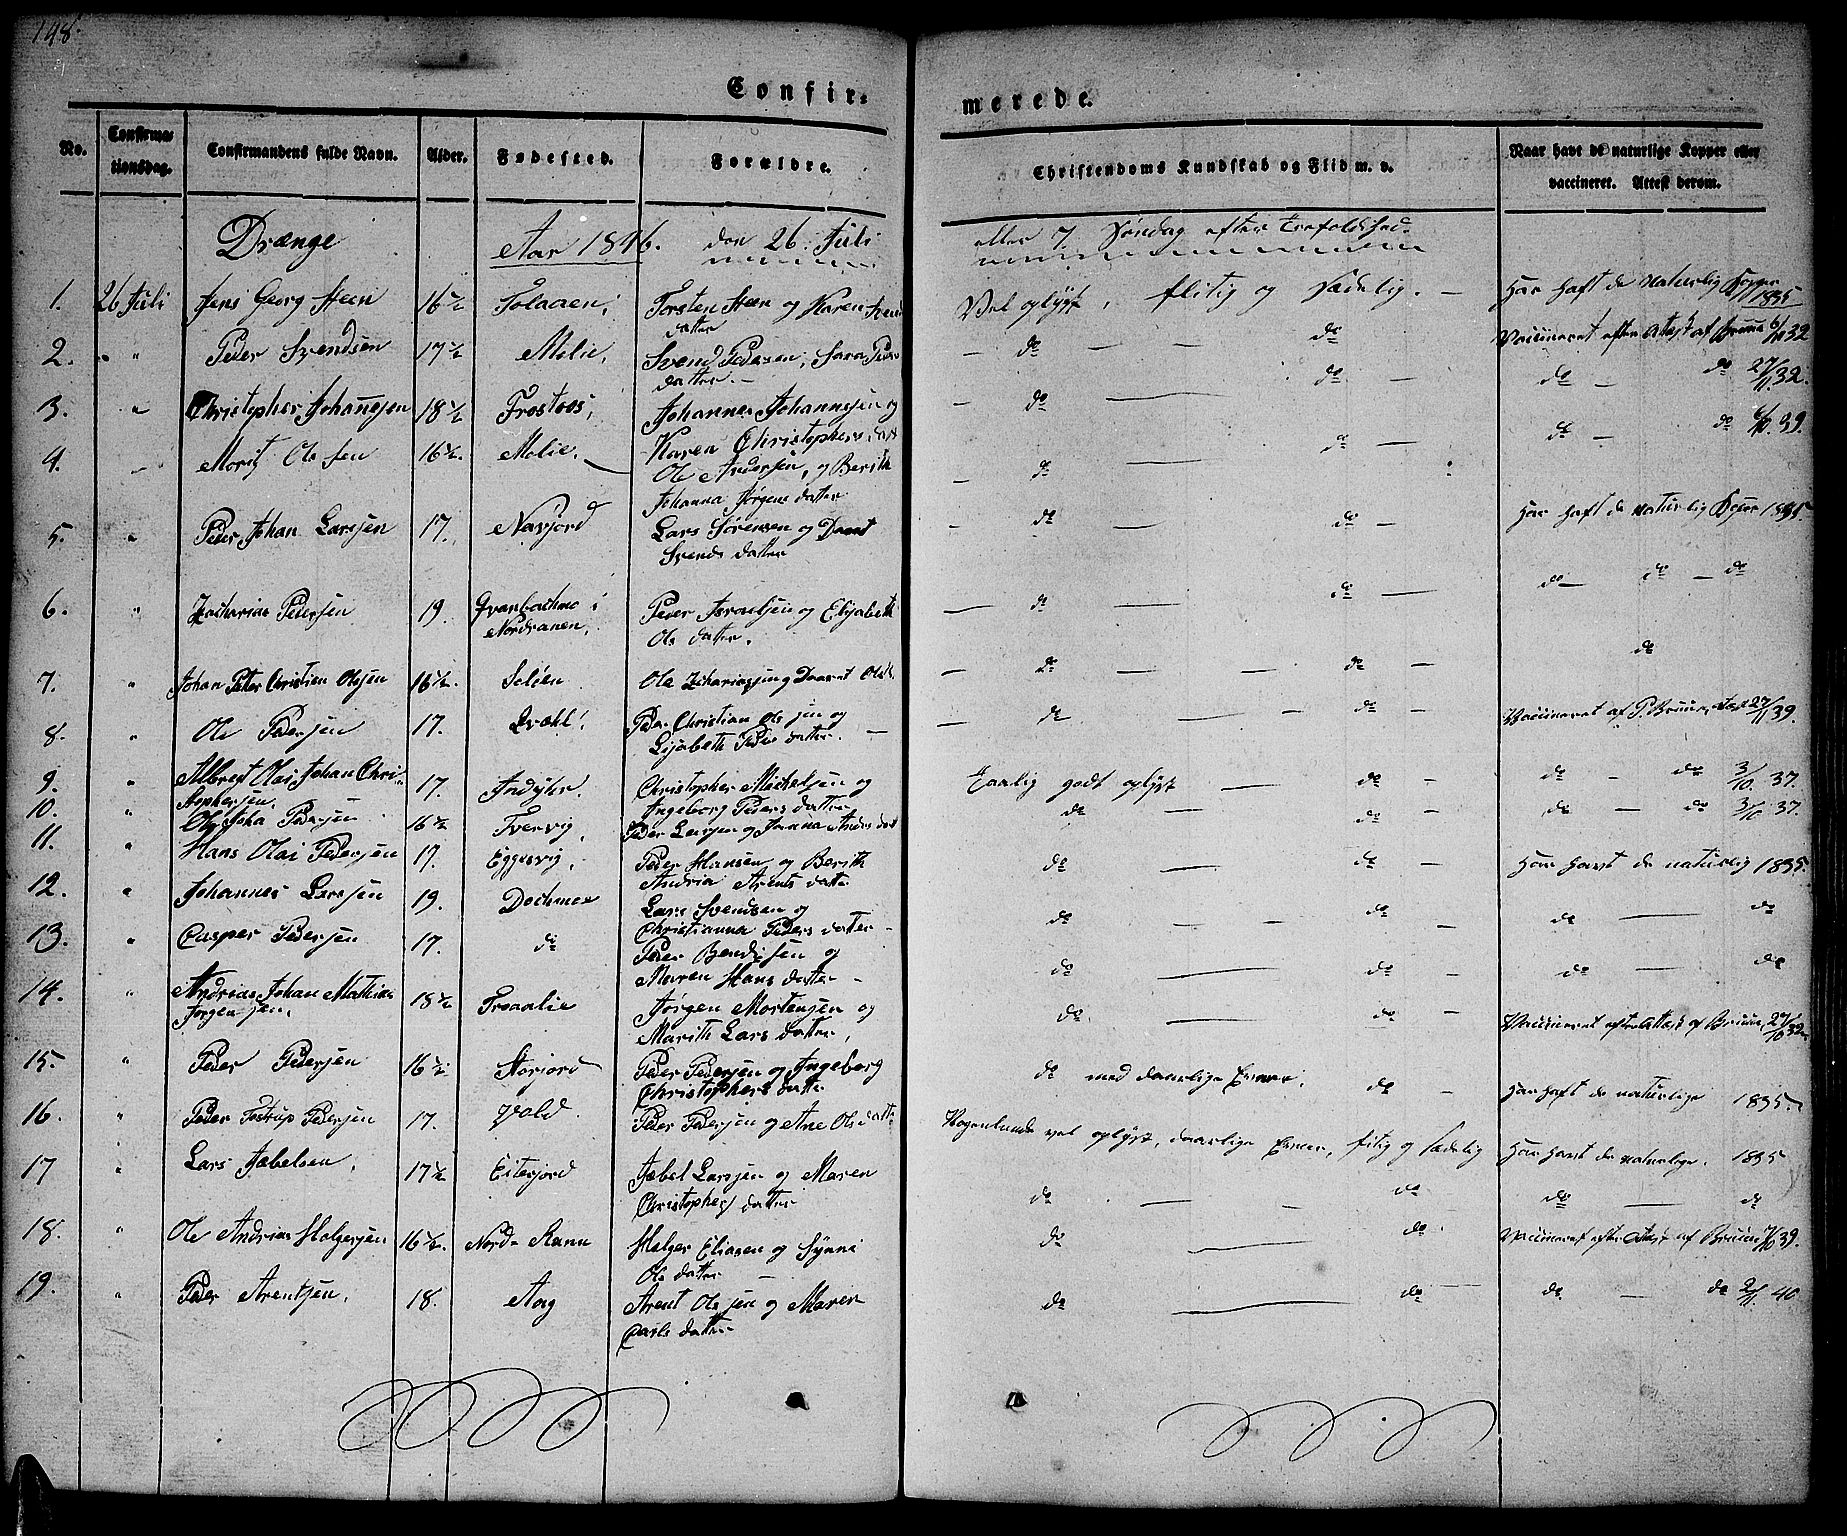 148.
Confir= merede.
No. Confirmationsdag. Confirmandens fulde Navn. Alder. Fødested. Forældre. Christendoms Kundskab og Flid m. v. Naar have de naturlige Kopper eller vaccineret. Attest derom.
Drænge Aar 1846. den 26 Juli eller 7 Søndag efter Trefoldihed.
1. 26 Juli Jens Georg Steen 16½ Torsten Steen og Karen Svends Vel oplyst, flitig og sædelig. — Har haft de naturlig Kopper 1835
datter
2. " " Peder Svendsen 17½ Melie, Svend Pedersen, Sara Peders — do — — do Vaccineret efter Atest af Bruun 6/10 32
datter. —
3. " Christopher Johannesen 18½ Johannes Johannesen og — do — do — do — do 27/11 32.
Karen Christophersdatt
4. " Moritz Olsen 16½. Melie. Ole Andersen, og Berith — do — do — do — do 6/10. 39.
Johanna Jørgens datter
5. " Peder Johan Larssen 17. Navjord Lars Sørensen og — do — do — Har haft de naturlig Koper 1835.
Svends datter
6. " Zacharias Pedersen 19. i Peder Israelsen og Elisabeth — do — do — do — do — do
Nordranen, Ols datter.
7. " Johan Peter Christien Olsen 16½. Ole Zchariassen og Daarat Olsd. — do — — do — do
8. " Ole Pedersen 17. Peder Christian Olssen og — do — — do — Vaccineret af P. Bruun, atest 27/11 39.
Lisabeth Peders datter. —
9. " Albregt Olai Johan Chri- 17. Indyhr. Christopher Michelsen og Taalig godt oplyst — do — do — do 3/10. 37.
stophersen. Ingeborg Peders datter
10. " Ole Pedersen 16½ Tvervig, Peder Larssen og Andersdatt do — do do — do 3/10 37.
11. " Hans Olai Pedersen 17. Eggesvig. Peder Hansen og Berith do — do — Har havt de naturlig 1835.
Andria Arents datter
12. " Johannes Larssen 19. Dochmoe Lars Svendsen og do — — do do — do
Christianna Peders datter —
13. " Casper Pedersen 17. do Peder Bendissen og do — do — do — do
Maren Hans datter —
14. " Andrias Johan Mathias 18½ Traanlie Jørgen Mortensen og do. — do — Vaccineret efter Attest af Bruun 27/10 32.
Jørgensen. Marith Lars datter,
15. " Peder Pedersen 16½ Storjord Peder Pedersen og Ingeborg do med daarlige Evner. do — Har haft de naturlige 1835.
Christophers datter
16. " Peder Pedersen 17. Vold. Peder Pedersen og Ane Olsdatter Nogenlunde vel oplyst, daarlige Evner, flitig og sædelig Har havt de naturlige. 1835
17 " Lars Jæbelsen, 17½ Eiterjord Jæbel Larssen og Maren do — — do do — do
Christophers datter
18. " Ole Andrias Holgersen 16½. Nord-Ranen Holger Eliasen og Synni do — do. Vaccineret efter Atest af Bruun 7/10 39.
Ols datter —
19. " Peder Arentsen. 18. Aag Arent Olssen og Maren do — do — do. — do 2/11. 40
Carls datter